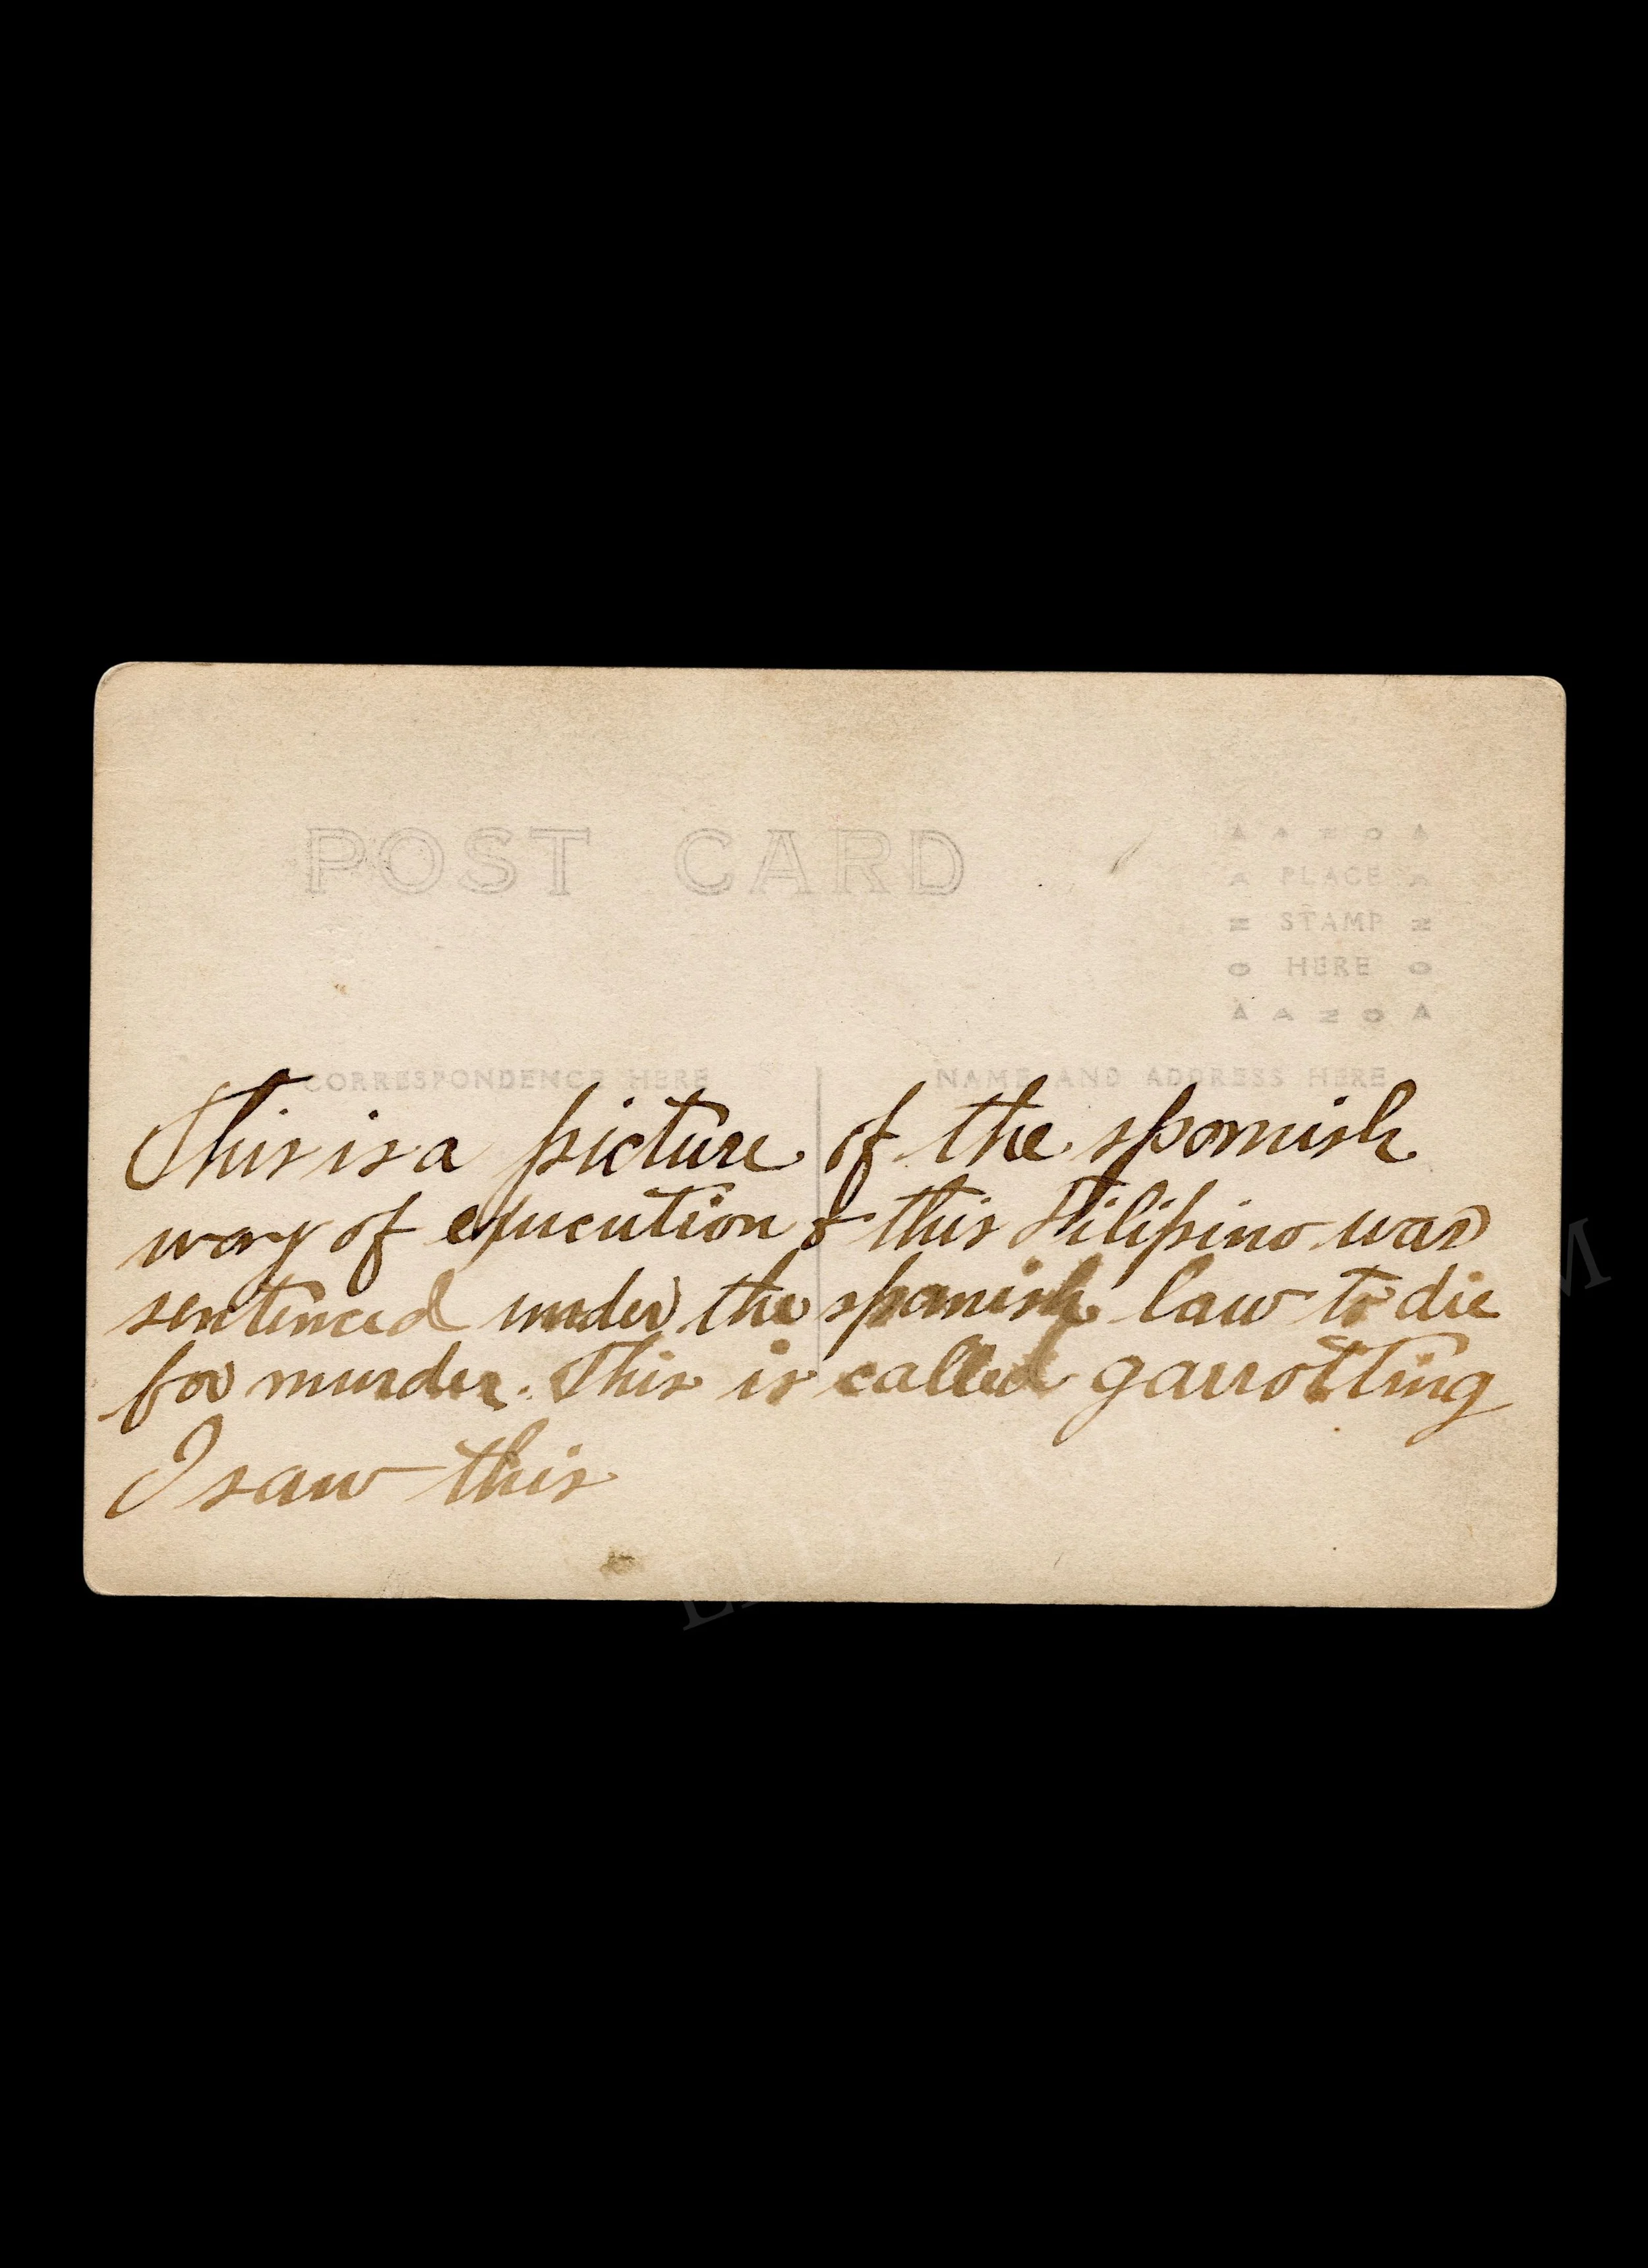 POST CARD
AZO
PLACE
STAMP
HERE
AZO
CORRESPONDENCE HERE
NAME AND ADDRESS HERE
This is a picture of the spanish
way of execution & this Filipino was
sentenced under the spanish law to die
for murder. This is called garrotting
I saw this